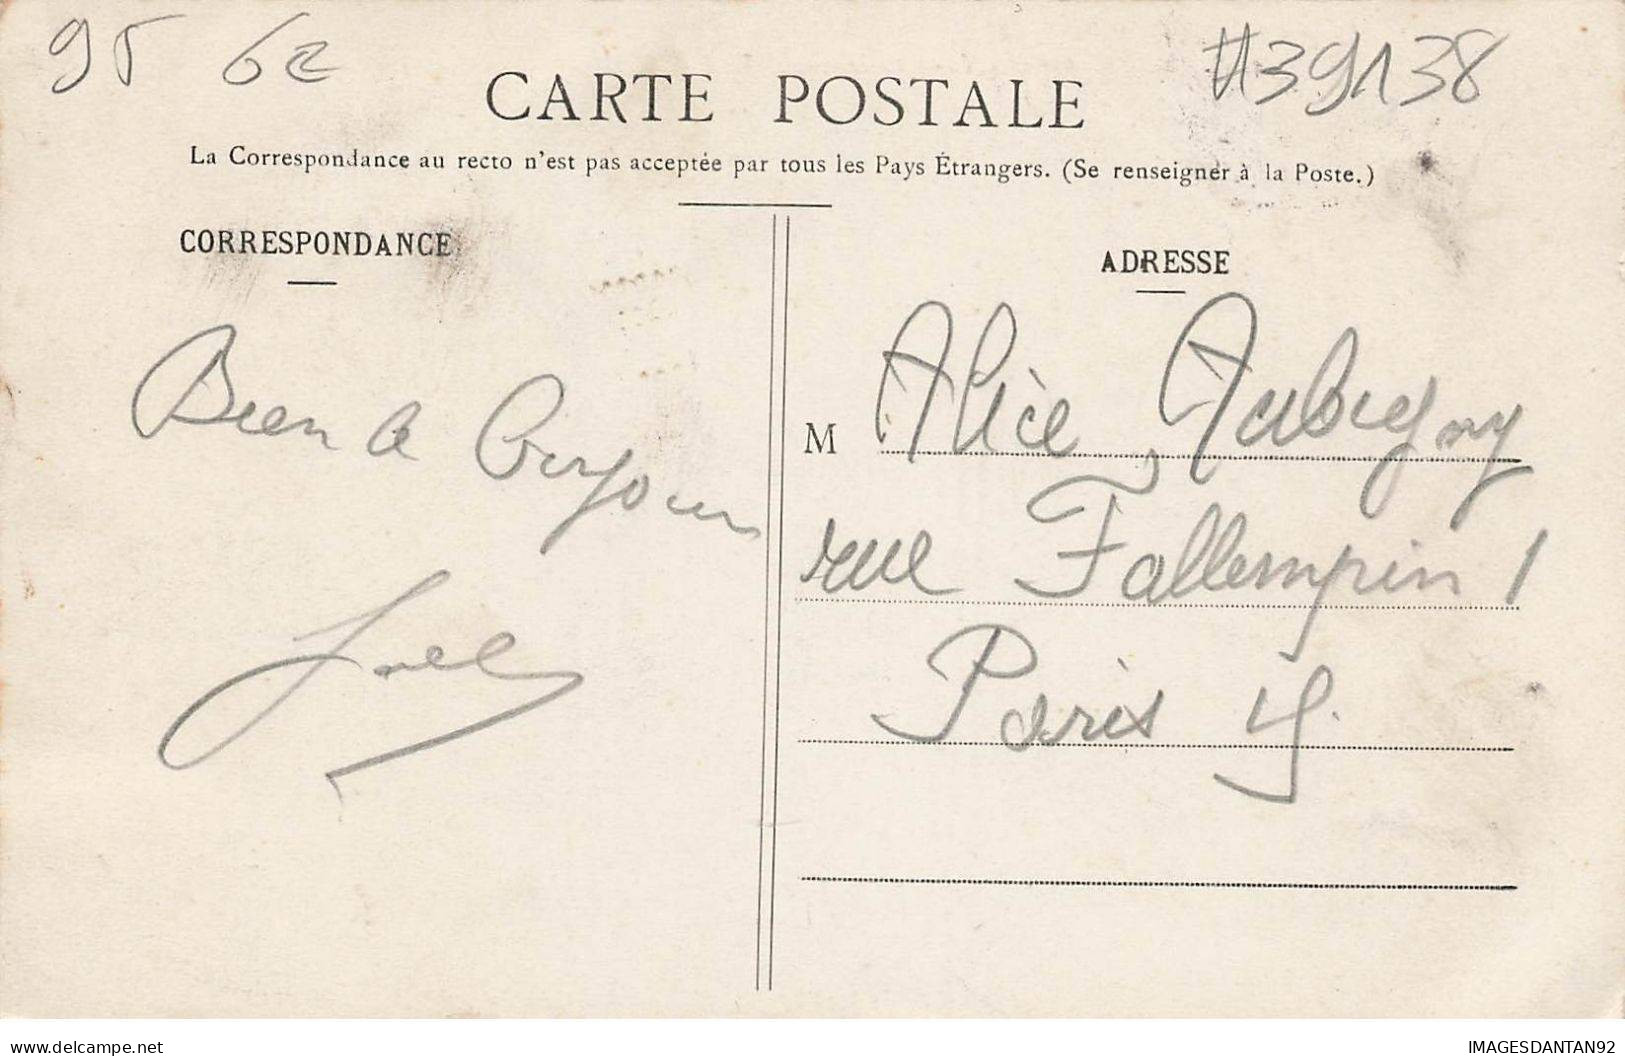 95 6E
#39138
CARTE POSTALE
La Correspondance au recto n'est pas acceptée par tous les Pays Étrangers. (Se renseigner à la Poste.)
CORRESPONDANCE
Bien à
ADRESSE
M Alice Aubigny
rue Fallempin 1
Paris 15.
www.delcampe.net
IMAGESDANTAN92